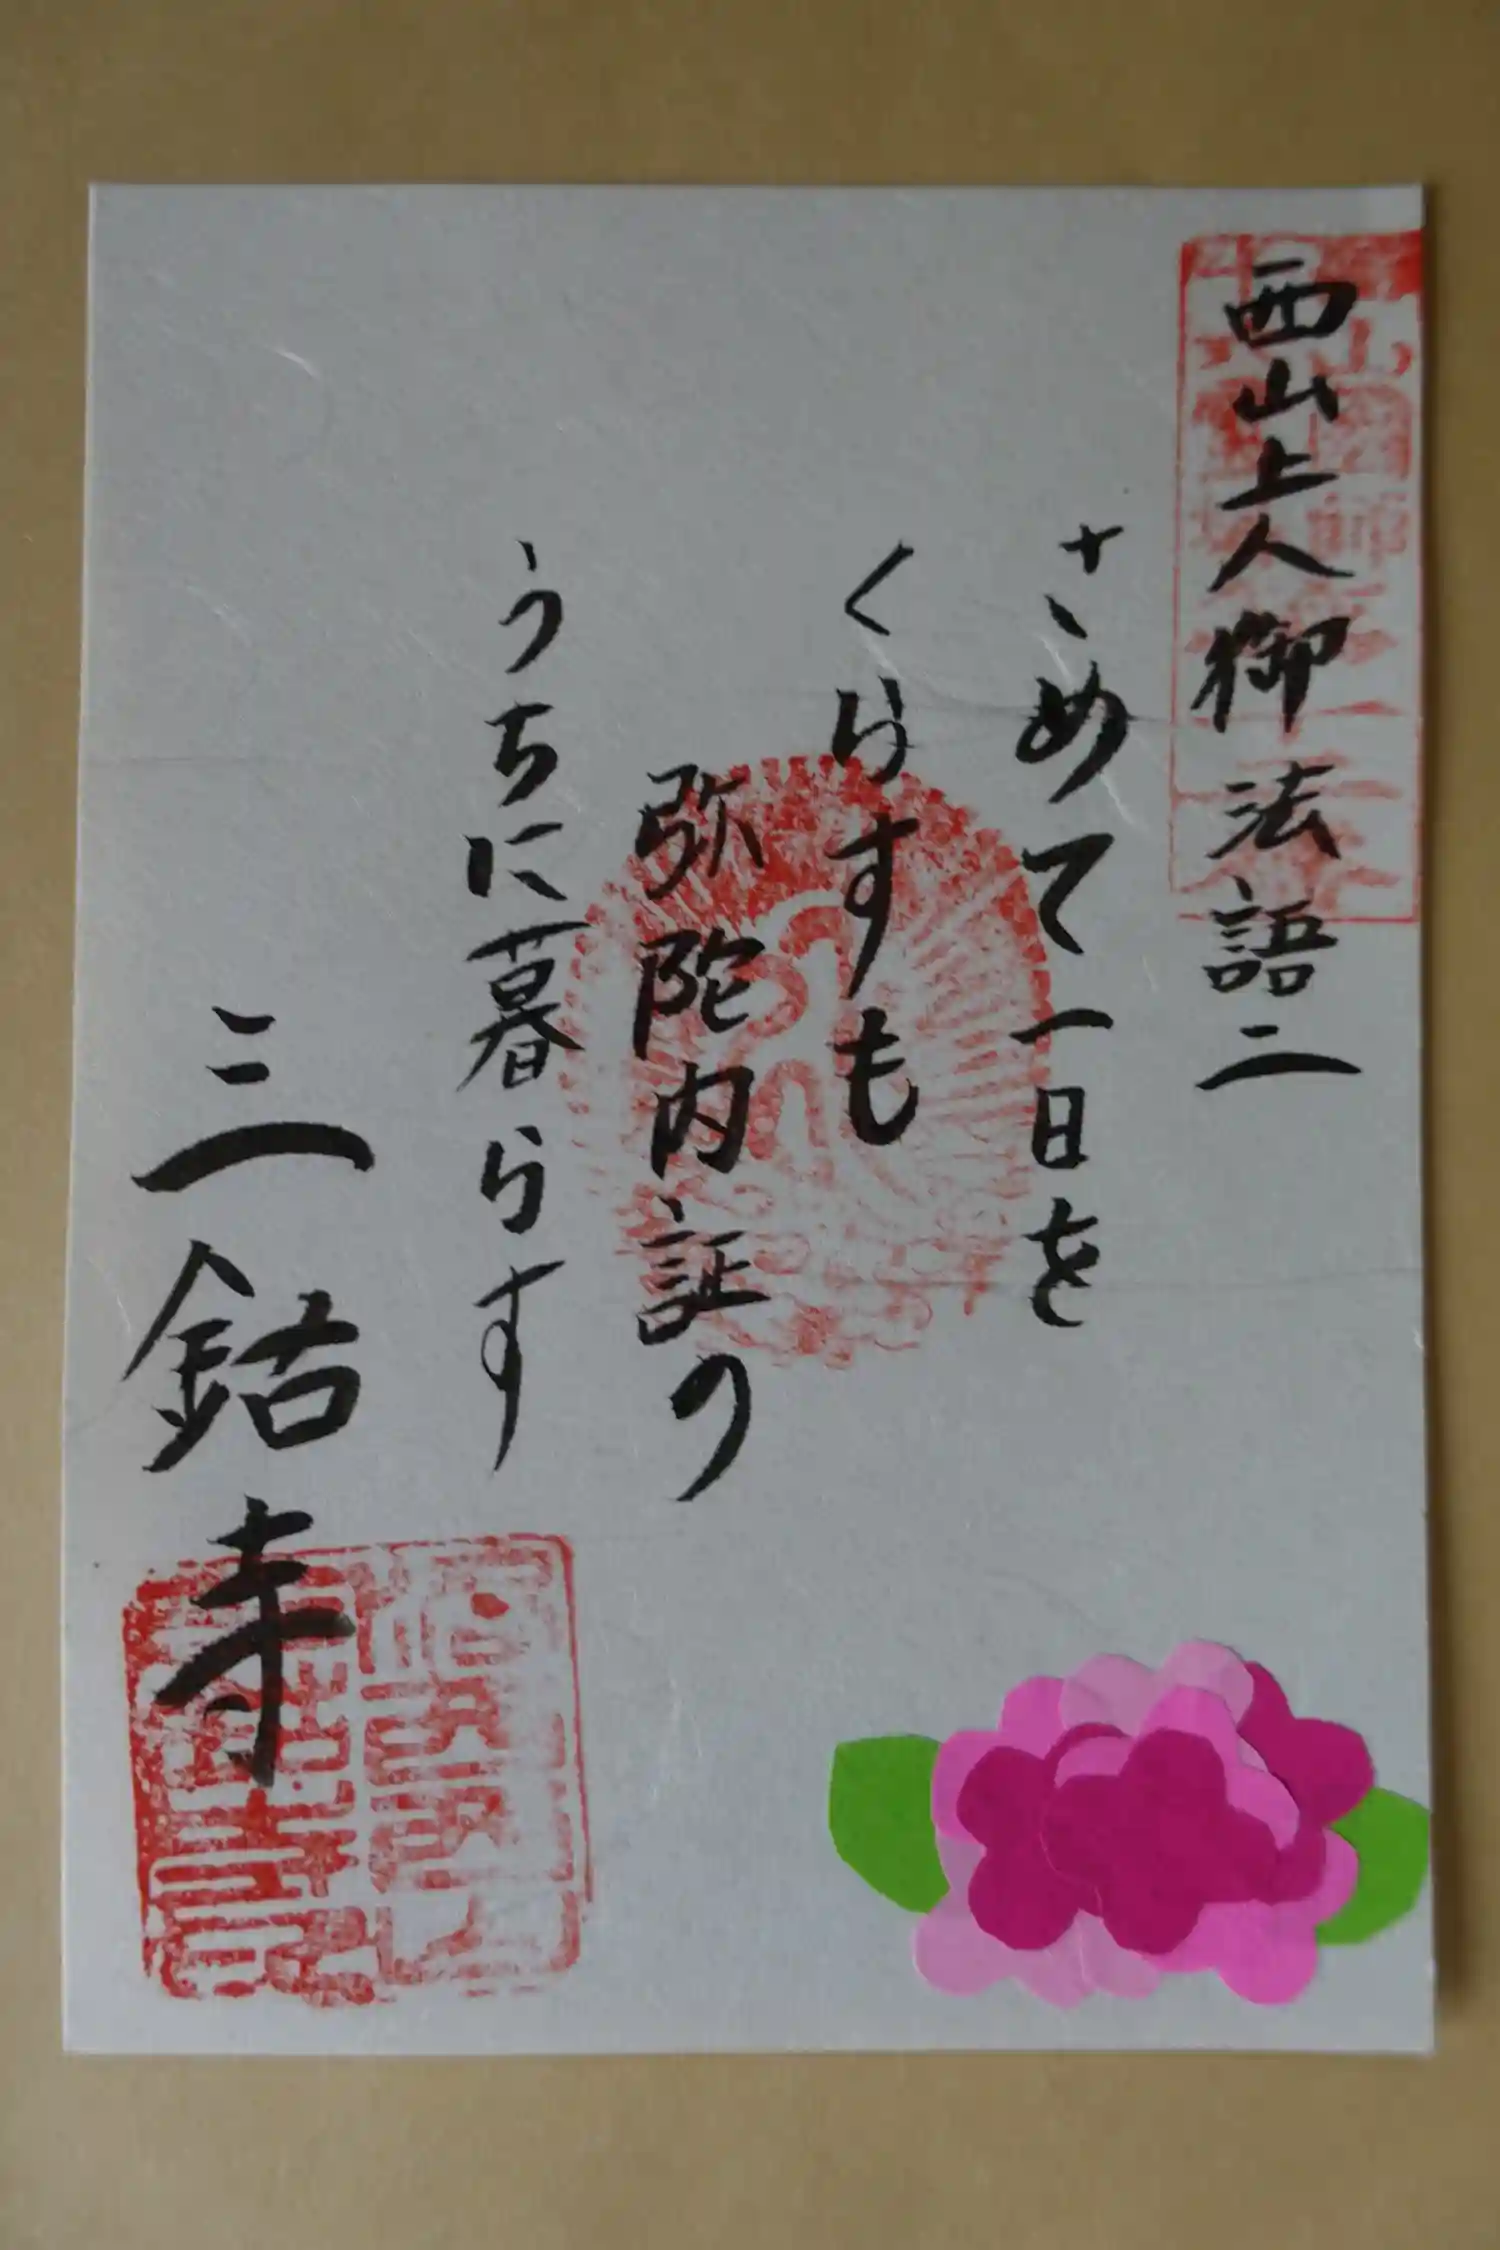 西山上人御法語二
さめて一日を
くらすも
弥陀内証の
うちに暮らす
三鈷寺